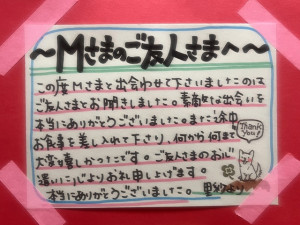 ～Mさまのご友人さまへ～
この度Mさまと出会わせて下さいましたのは
ご友人さまとお聞きしました。素敵な出会いを
本当にありがとうございました。また途中
お食事を差し入れて下さり、何から何まで
大変嬉しかったです。ご友人さまのお心
遣いに心よりお礼申し上げます。
本当にありがとうございました。
Thank you!